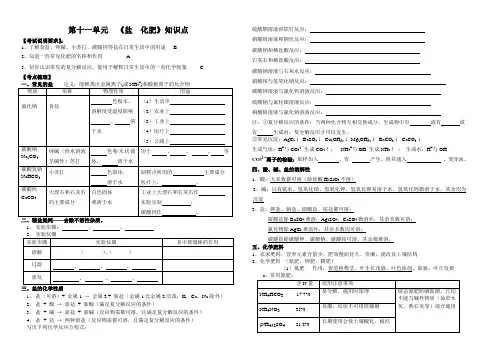 第十一单元 《盐 化肥》知识点
【考试说明要求】:
1、了解食盐、纯碱、小苏打、碳酸钙等盐在日常生活中的用途 B
2、知道一些常见化肥的名称和作用 A
3、初步认识常见的复分解反应，能用于解释日常生活中的一些化学现象 C
【考点梳理】
一、常见的盐 定义：能解离出金属离子(或NH4+)和酸根离子的化合物
物质 俗称 物理性质 用途
氯化钠 食盐 色粉末， 溶解度受温度影响 溶于水
（1）生活中
（2）农业上
（3）工业上
（4）医疗上
（5）公路上
碳酸钠 Na2CO3 纯碱（因水溶液呈碱性）苏打 色粉末状固体， 溶于水 用于 、 、 等
碳酸氢钠 NaHCO3 小苏打 色固体， 溶于水 制糕点所用的 主要成分 医疗上，
碳酸钙 CaCO3 大理石和石灰石的主要成分 白色固体 难溶于水 工业上大理石和石灰石作 实验室制 碳酸钙作
二、精盐提纯——去除不溶性杂质，
1、实验步骤： 、 、
2、实验仪器
实验步骤 实验仪器 其中玻璃棒的作用
溶解
过滤
蒸发
三、盐的化学性质
1、盐（可溶）+ 金属1 → 金属2 + 新盐（金属1比金属2活泼，K、Ca、Na除外）
2、盐 + 酸 → 新盐 + 新酸（满足复分解反应的条件）
3、盐 + 碱 → 新盐 + 新碱（反应物需都可溶，且满足复分解反应的条件）
4、盐 + 盐 → 两种新盐（反应物需都可溶，且满足复分解反应的条件）
写出下列化学反应方程式：
硫酸铜溶液和铁钉反应：
硝酸银溶液和铜丝反应：
碳酸钠和稀盐酸反应：
石灰石和稀盐酸反应：
碳酸钠溶液与石灰水反应：
碳酸钠溶液与氯化钙溶液反应：
注：①复分解反应的条件：当两种化合物互相交换成分，生成物中有 或有 或
有 生成时，复分解反应才可以发生。
四、酸、碱、盐的溶解性
1、酸：大多数都可溶（除硅酸H2SiO3不溶）
2、碱：只有氨水、氢氧化钠、氢氧化钾、氢氧化钡易溶于水，氢氧化钙微溶于水，其余均为
沉淀
3、盐：钾盐、钠盐、硝酸盐、铵盐都可溶；
硫酸盐除BaSO4难溶，Ag2SO4、CaSO4微溶外，其余多数可溶；
氯化物除AgCl难溶外，其余多数均可溶；
碳酸盐除碳酸钾、碳酸钠、碳酸铵可溶，其余都难溶。
五、化学肥料
1、农家肥料：营养元素含量少，肥效慢而持久、价廉、能改良土壤结构
2、化学肥料 （氮肥、钾肥、磷肥）
（1）氮肥 作用：促进植物茎、叶生长茂盛、叶色浓绿。缺氮：叶片发黄
a、常用氮肥：
含N量 使用注意事项
NH4HCO3 17.7% 易分解，施用时深埋
NH4NO3 35% 易爆，结块不可用铁锤砸
(NH4)2SO4 21.2% 长期使用会使土壤酸化、板结
铵态氮肥防晒防潮，且均不能与碱性物质（如草木灰、熟石灰等）混合施用